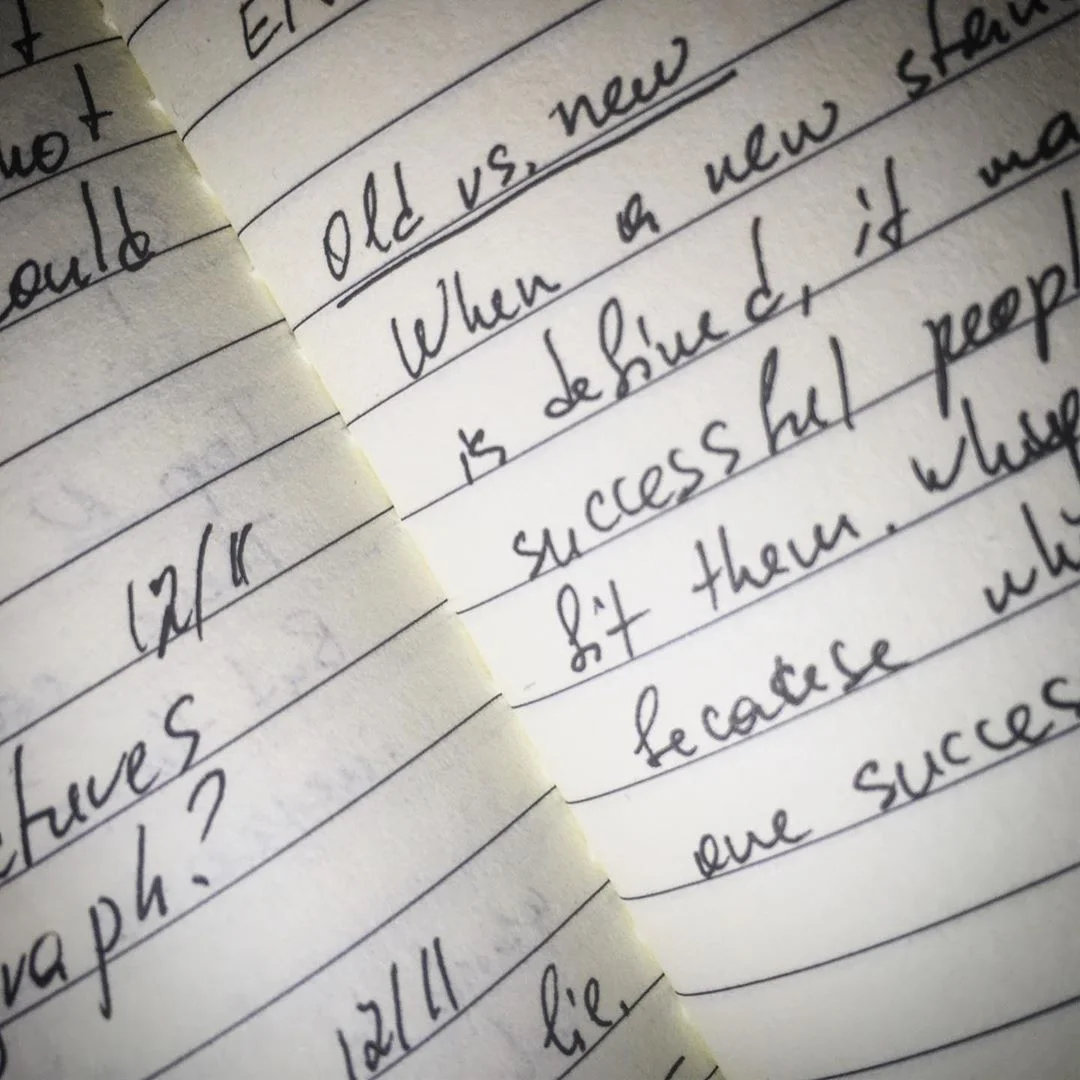 not
ould
12/11
tures
raph?
12/11
lie.
Old vs. new
When a new stan
is defined, it ma
successful peopl
fit them. whisp
because whi
one succes